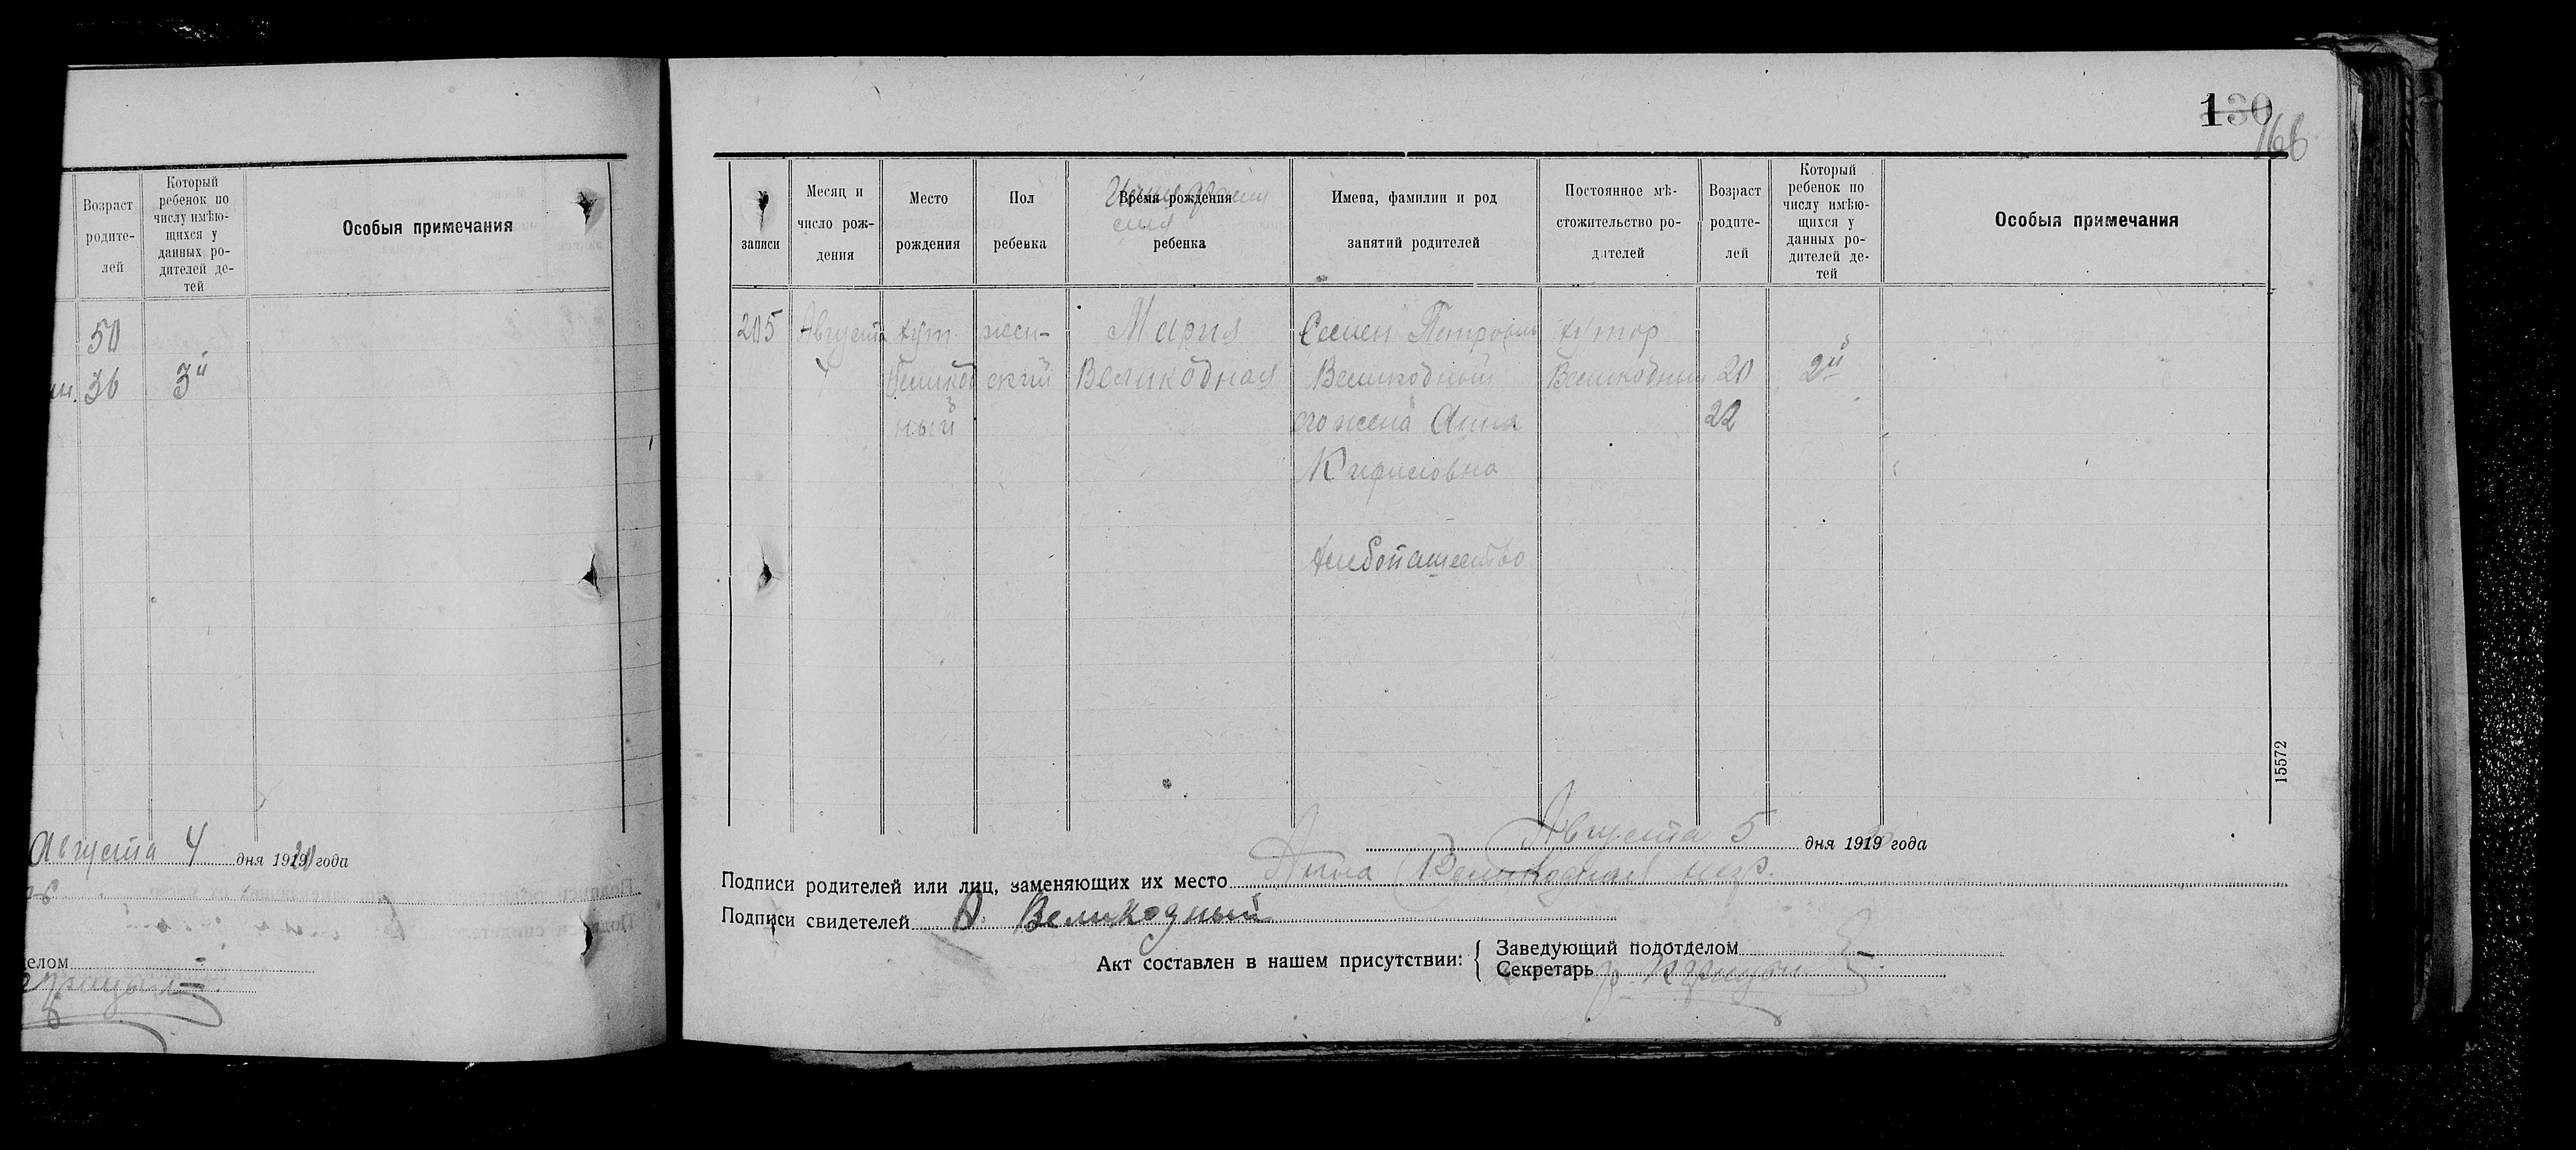 Возраст
родите-
лей
Который
ребенок по
числу имѣю-
щихся у
данных ро-
дителей де-
тей
Особыя примечания
50
36
3й
Августа 4 дня 1920 года
елом
130
166
записи
Месяц и
число рож-
дения
Место
рождения
Пол
ребенка
Время рождения
ребенка
Имена, фамилии и род
занятий родителей
Постоянное мѣ-
стожительство ро-
дителей
Возраст
родите-
лей
Который
ребенок по
числу имѣю-
щихся у
данных ро-
дителей де-
тей
Особыя примечания
205 Август хут. жен- Мария Семен Петрович хутор
Великод ский Великодная Великодный Великодный 20 2й
ный его жена Анна 22
хлебопашество
15572
Августа 5 дня 1919 года
Подписи родителей или лиц, заменяющих их место Анна Великодная негр.
Подписи свидетелей Великодный
Акт составлен в нашем присутствии:
Заведующий подотделом
Секретарь